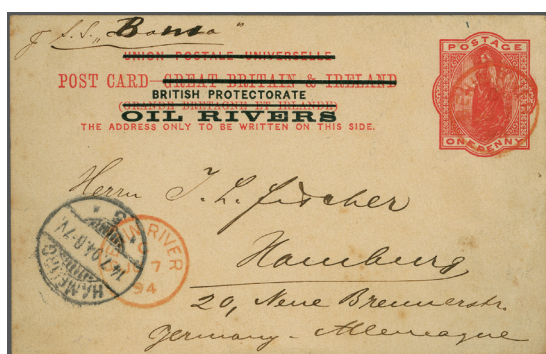 p. S.S. "Bonna"
UNION POSTALE UNIVERSELLE
POST CARD—GREAT BRITAIN & IRELAND
BRITISH PROTECTORATE
(GRANDE BRETAGNE ET IRLANDE)
OIL RIVERS
THE ADDRESS ONLY TO BE WRITTEN ON THIS SIDE.
POSTAGE
ONE PENNY
Herrn J. L. Fischer
Hamburg
20, Neue Brennerstr.
Germany - Allemagne
HAMBURG
14.7.94.6-7V.
RIVER
7
94